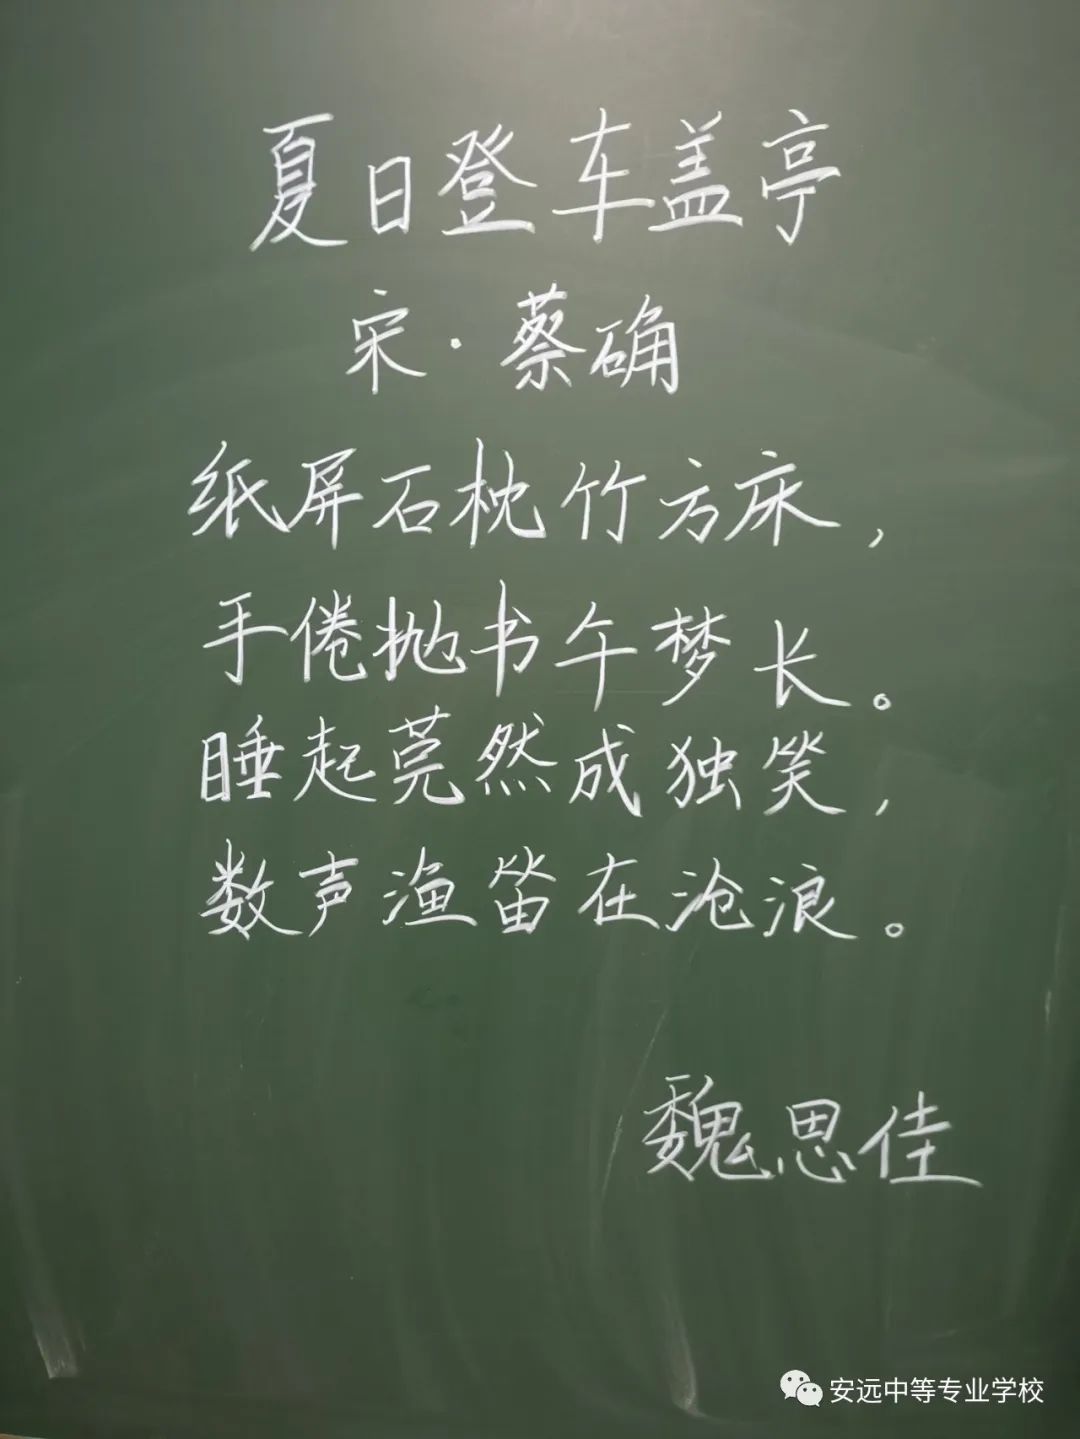 夏日登车盖亭
宋·蔡确
纸屏石枕竹方床，
手倦抛书午梦长。
睡起莞然成独笑，
数声渔笛在沧浪。
魏思佳
安远中等专业学校